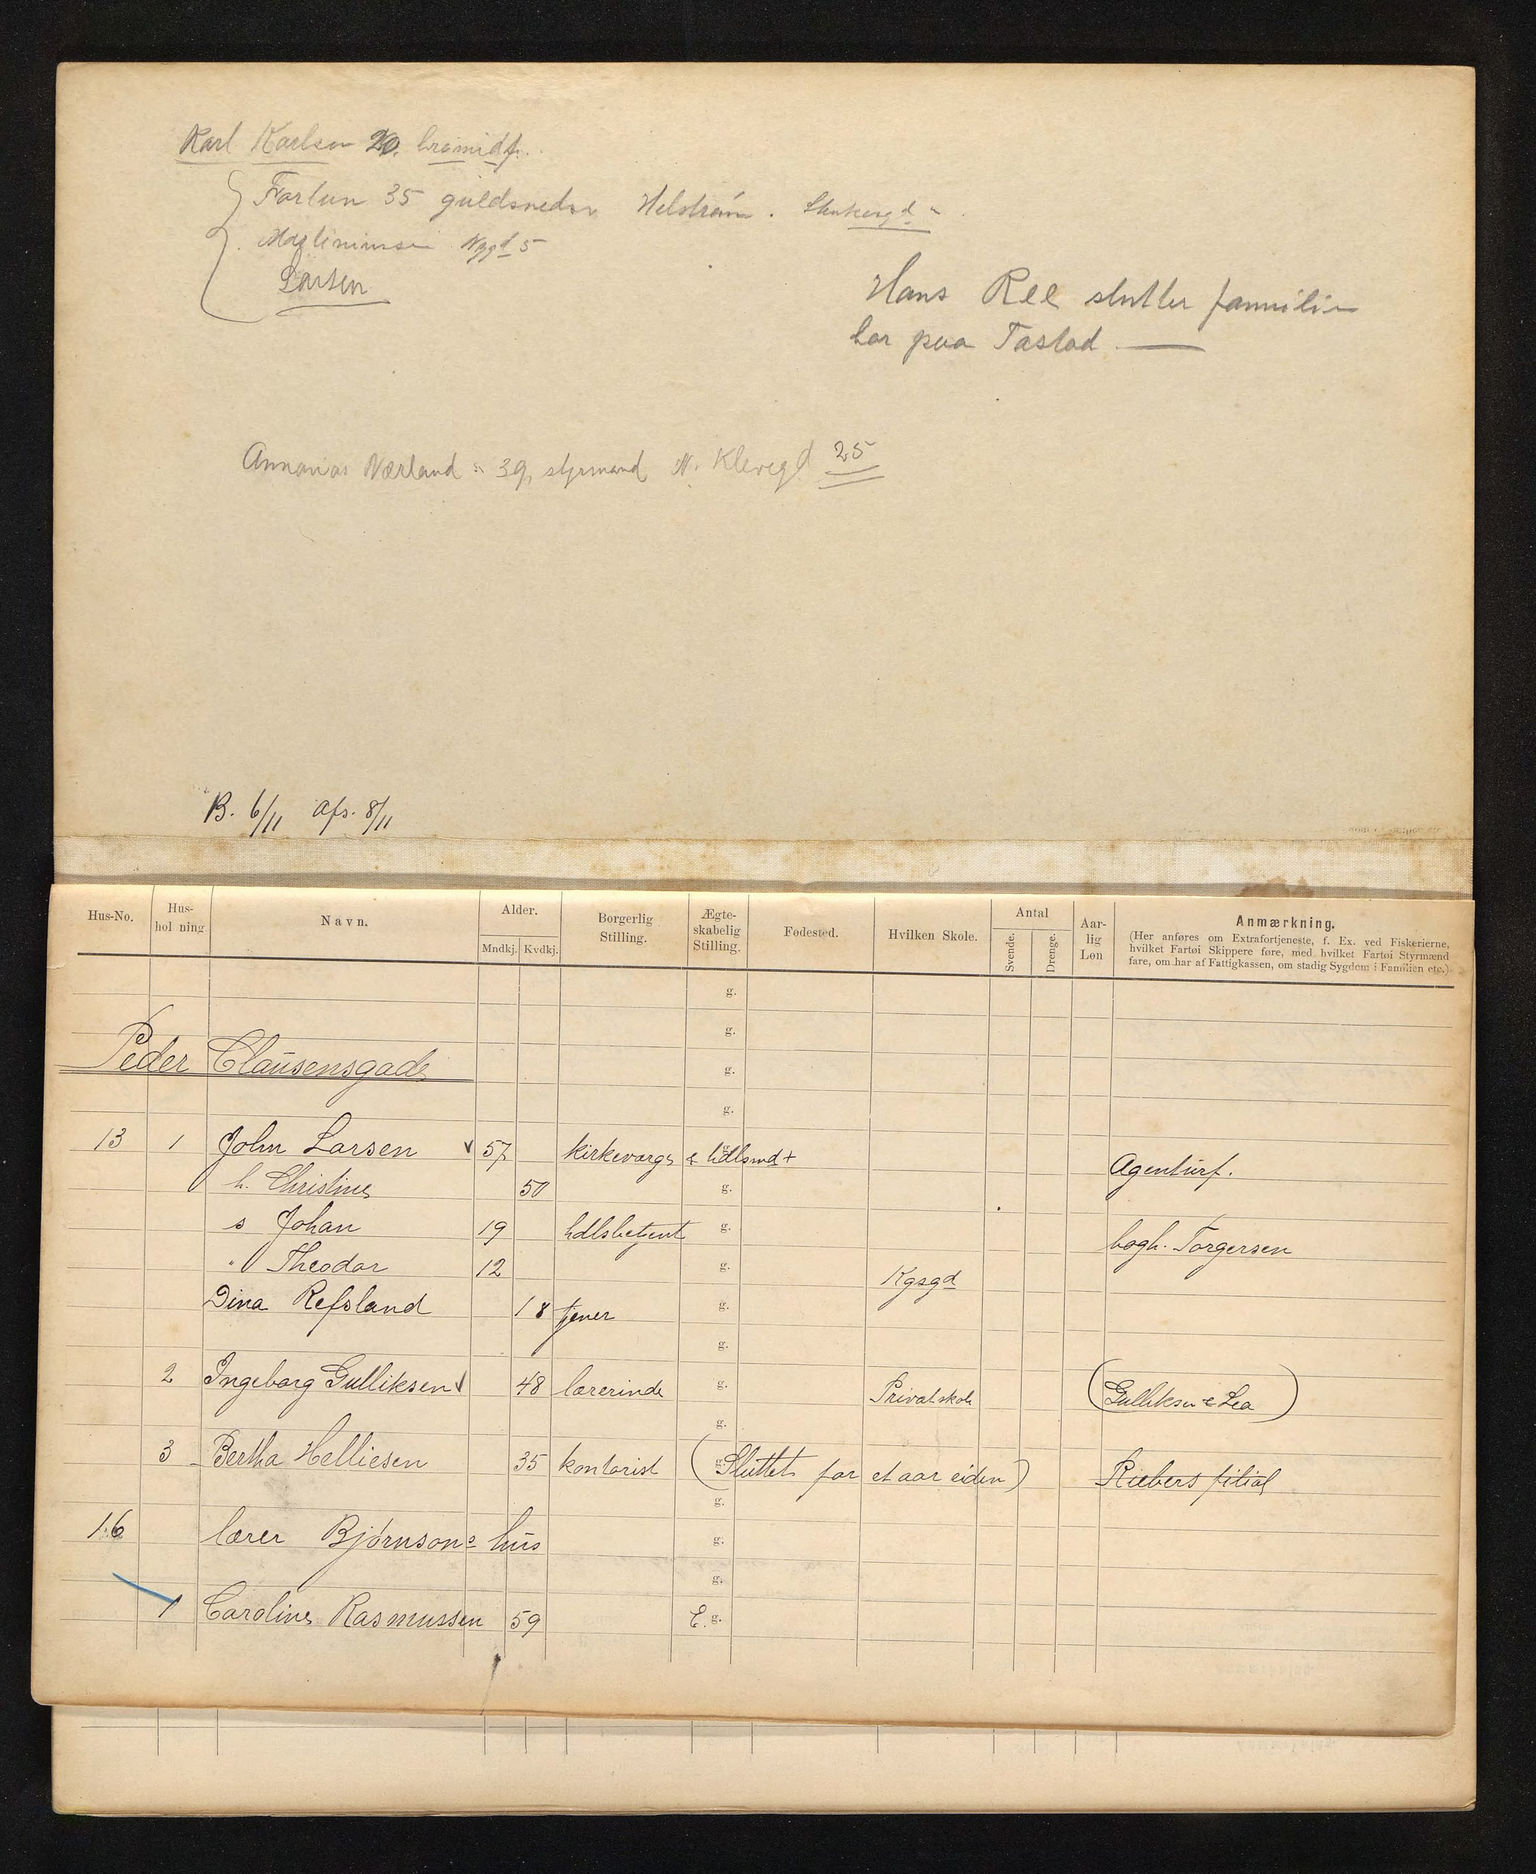 Karl Karlsen 20.
Fortun 35 guldsmedsv. Helstrøm.
Nygd 5
Larsen
Hans Ree slutter familie
har paa Tastad
Annanias Nærland 39, styrmand N. Klevegd 25
B. 6/11 Afs. 8/11
Hus-No. Hus-hol ning Navn. Alder. Mndkj. Kvdkj. Borgerlig Stilling. Ægte-skabelig Stilling. Fødested. Hvilken Skole. Antal Svende. Drenge. Aar-lig Løn Anmærkning.
(Her anføres om Extrafortjeneste, f. Ex. ved Fiskerierne,
hvilket Fartøi Skippere føre, med hvilket Fartøi Styrmænd
fare, om har af Fattigkassen, om stadig Sygdom i Familien etc.)
g.
g.
Peder Clausensgade g.
g.
13 1 John Larsen 57 kirkeværge & hdlsmd + Agenturf.
h. Christine 50 g.
s Johan 19 hdlsbetjent g. bogh. Torgersen
" Theodor 12 g. Kgsgd
Dina Refsland 18 tjener g.
g.
2 Ingeborg Gulliksen 48 lærerinde g. Privatskole (Gulliksen & Lea)
g.
3 Bertha Helliesen 35 kontorist g. (Sluttet for et aar siden) Riebers filial
g.
16 lærer Bjørnsons hus g.
g.
1 Caroline Rasmussen 59 E. g.